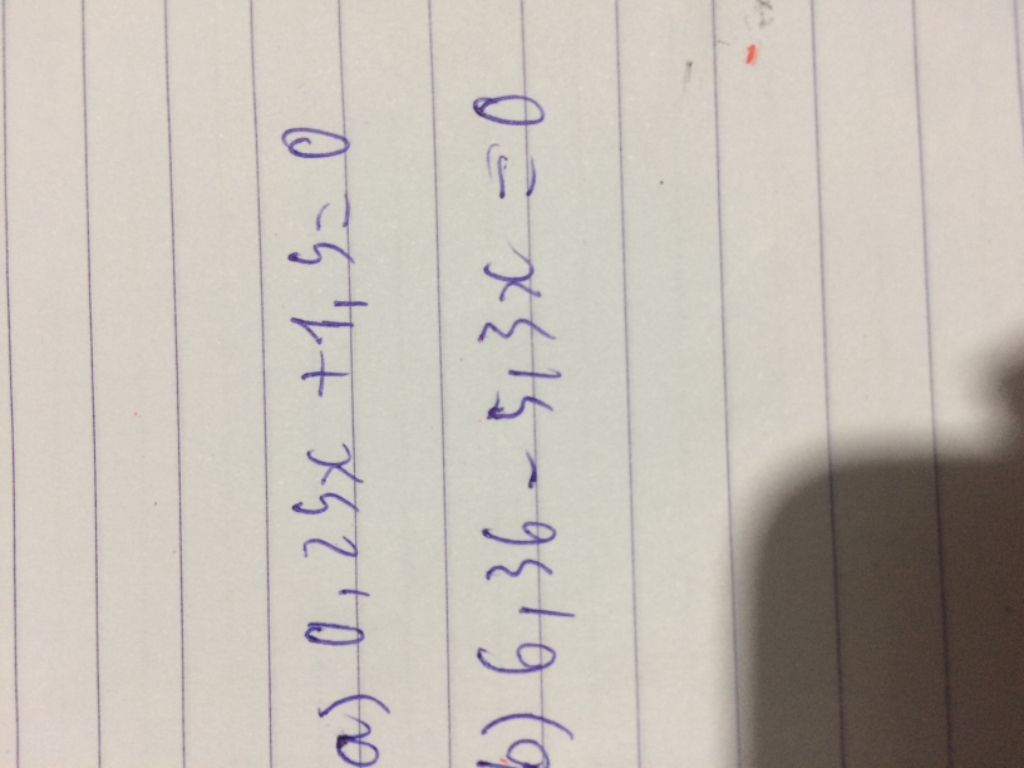 a) 0,25x +1,5=0
b) 6,36 - 5,3x = 0